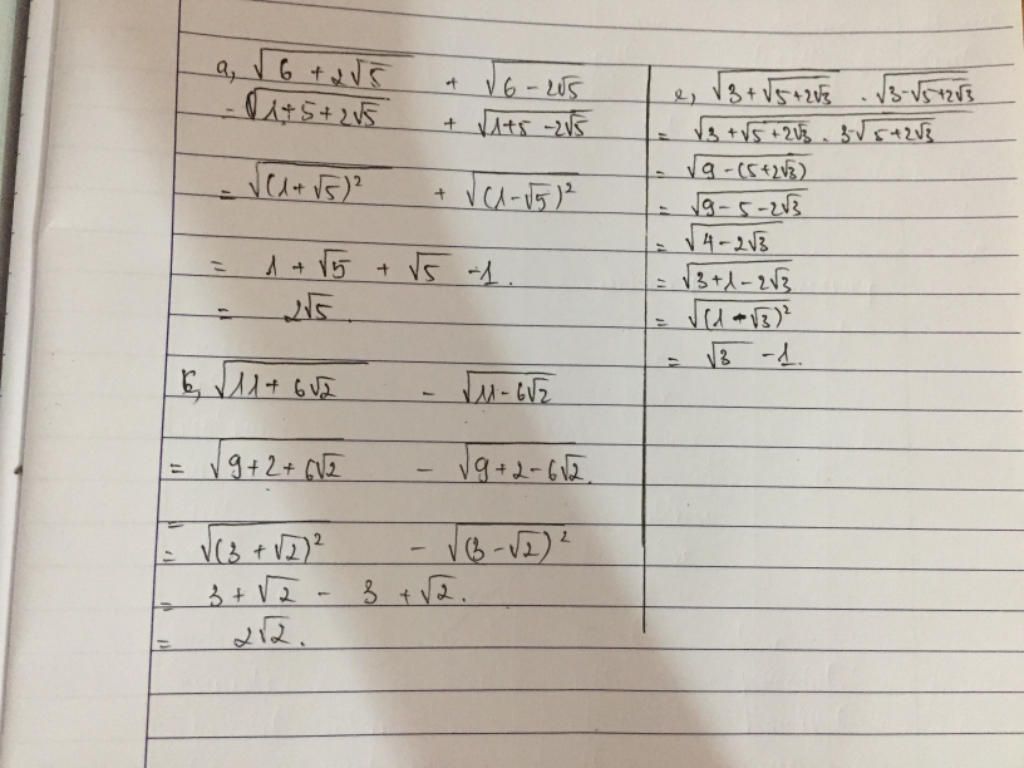 a, √(6 + 2√5) + √(6 - 2√5)
= √(1+5+2√5) + √(1+5-2√5)
= √((1+√5)²) + √((1-√5)²)
= 1 + √5 + √5 - 1.
= 2√5.
b, √(11 + 6√2) - √(11-6√2)
= √(9+2+6√2) - √(9+2-6√2).
=
= √((3+√2)²) - √((3-√2)²)
= 3+√2 - 3 +√2.
= 2√2.
c, √(3+√(5+2√3)) . √(3-√(5+2√3))
= √(3+√(5+2√3) . 3-√(5+2√3))
= √(9-(5+2√3))
= √(9-5-2√3)
= √(4-2√3)
= √(3+1-2√3)
= √((1-√3)²)
= √3 - 1.